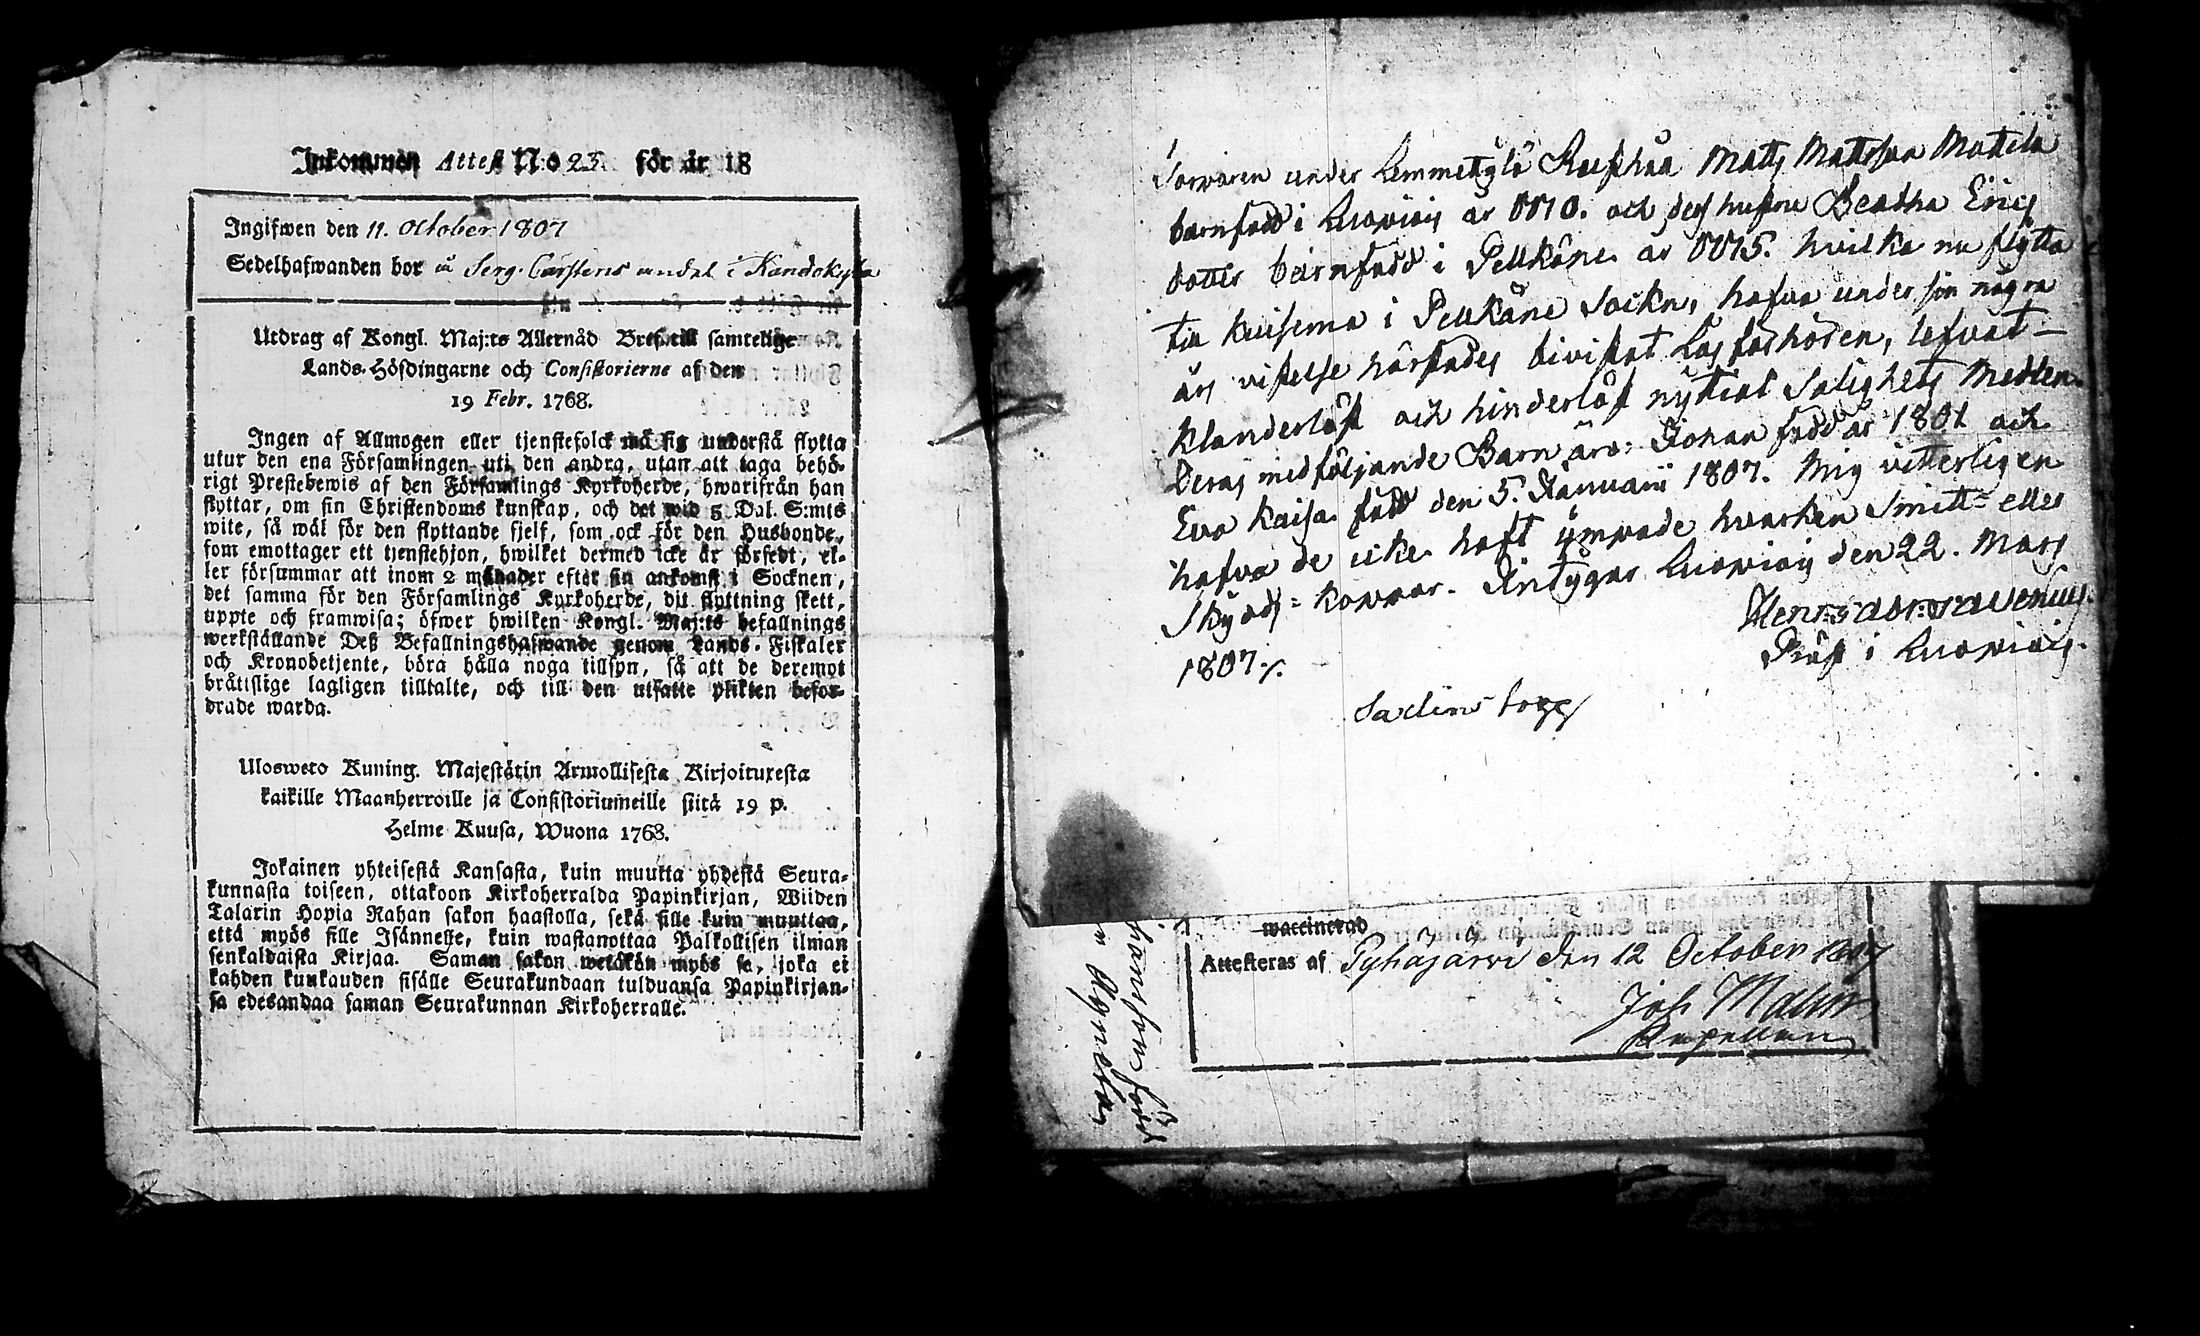 Inkommen Attest N:o 23. för år 18
Ingifwen den 11. October 1807
Sedelhafwanden bor å Serg. Carstens andel i Kandokyla
Utdrag af Kongl. Maj:ts Allernåd Bref till samtelige
Lands-Höfdingarne och Consistorierne af den
19 Febr. 1768.
Ingen af Allmogen eller tjenstefolck må sig understå flytta
utur den ena Församlingen uti den andra, utan att taga behö-
rigt Prestebewis af den Församlings Kyrkoherde, hwarifrån han
flyttar, om sin Christendoms kunskap, och det wid 5 Dal. S:mts
wite, så wäl för den flyttande sjelf, som ock för den Husbonde,
som emottager ett tjenstehjon, hwilket dermed icke är försedt, el-
ler försummar att inom 2 månader efter sin ankomst i Socknen,
det samma för den Församlings Kyrkoherde, dit flyttning skett,
uppte och framwisa; öfwer hwilken Kongl. Maj:ts befallnings
werkställande Deß Befallningshafwande genom Lands-Fiskaler
och Kronobetjente, böra hålla noga tillsyn, så att de deremot
bråttslige lagligen tilltalte, och till den utsatte plikten befor-
drade warda.
Ulosweto Kuning. Majestätin Armollisesta Kirjoituxesta
kaikille Maanherroille ja Consistoriumeille siitä 19 p.
Helme Kuusa, Wuona 1768.
Jokainen yhteisestä Kansasta, kuin muutta yhdestä Seura-
kunnasta toiseen, ottakoon Kirkoherralda Papinkirjan, Wiiden
Talarin Hopia Rahan sakon haastolla, sekä sille kuin muuttaa,
että myös sille Isännelle, kuin wastanottaa Palkollisen ilman
senkaldaista Kirjaa. Saman sakon wetäkön myös se, joka ei
kahden kuukauden sisälle Seurakundaan tulduansa Papinkirjan-
sa edesandaa saman Seurakunnan Kirkoherralle.
under Lemmettylä Matts Mattsson Mattila
barnfödd i år och dess hustru Beatha Erics
dotter barnfödd i Pelkäne år hvilka nu flytta
till i Pelkäne Sockn, hafva under sin några
års vistelse härstädes bivistat Läsförhören, lefvat
klanderlöst och hinderlöst nyttjat Salighets Medlen.
Deras medföljande Barn äro: Johan född år 1801 och
Eva Kaisa född den 5. Januarii 1807. Mig vitterligen
hafva de icke haft ympade hvarken Smitt- eller
Skydds-koppor. Intygar den 22. Mars
1807.
i
waccinerad
Attesteras af Pyhäjärvi den 12 October 1807
Joh. Malin
Kapellan
född